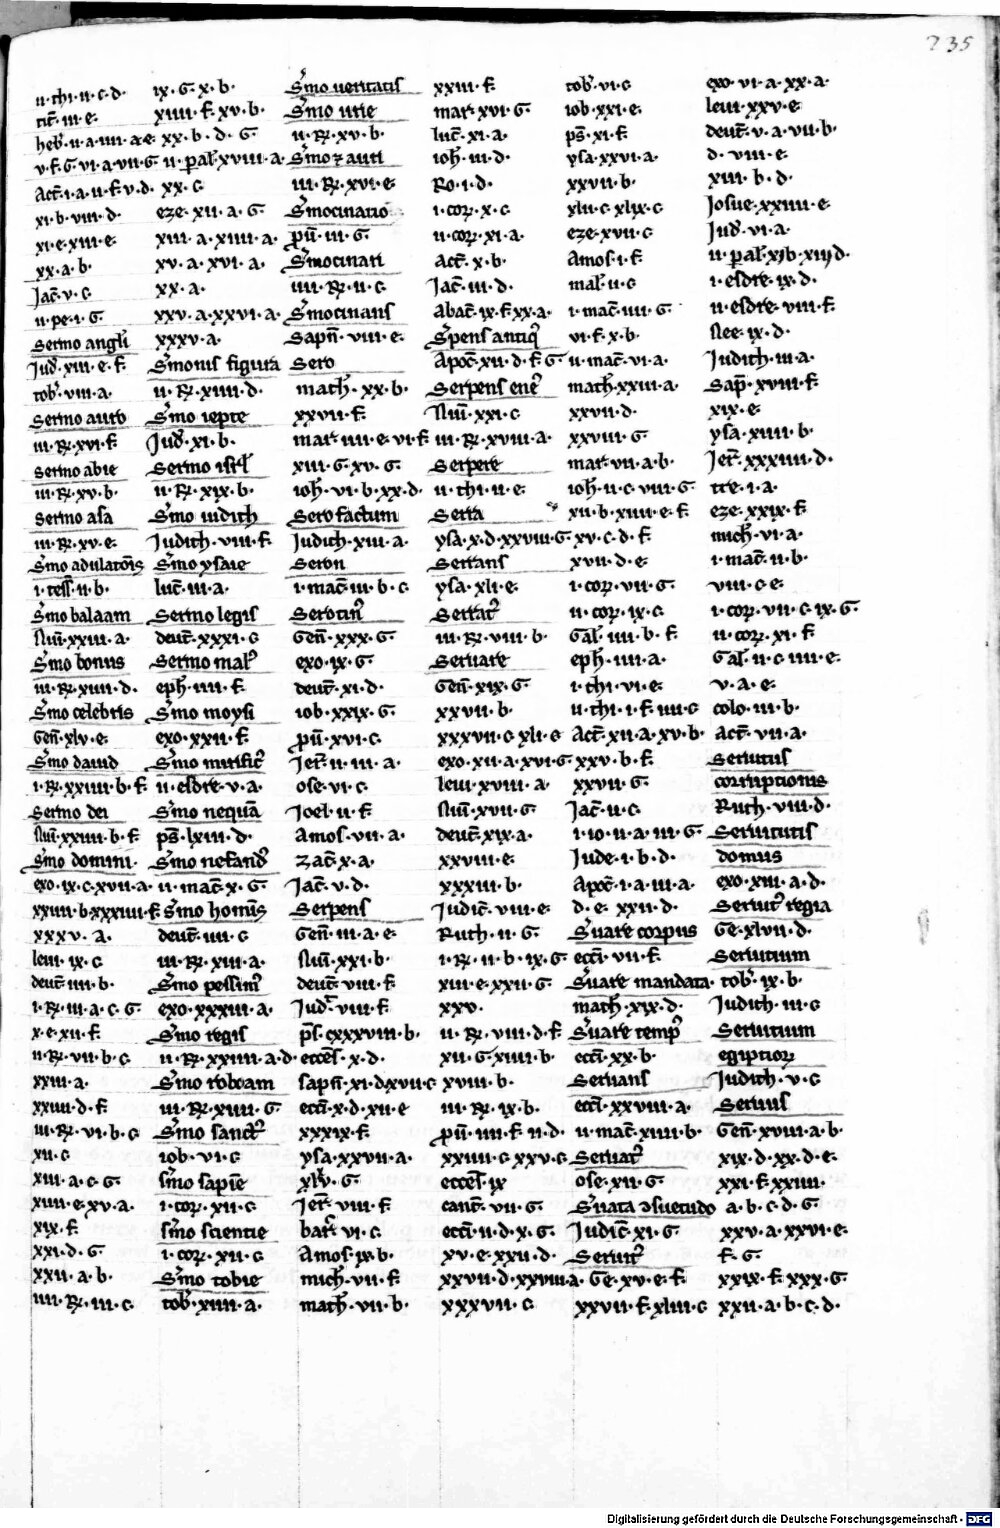 235
ii·thi·ii·c·d·
tit̄·iii·e·
heb̄·ii·a·iiii·a·e·
v·f·G·vi·a·vii·G·
Act̄·i·a·ii·f·v·d·
xi·b·viii·d·
xi·e·xiii·e·
xx·a·b·
Jac̄·v·c
ii·pe·i·G·
Sermo angl̄i
Jud̄·xiii·e·f·
tob̄·viii·a·
Sermo auro
iii·R̄·xvi·f
Sermo abie
iii·R̄·xv·b·
Sermo asa
iii·R̄·xv·e·
S̄mo adulatōis
i·tess̄·ii·b·
S̄mo balaam
Nū·xxiii·a·
S̄mo bonus
iii·R̄·xiiii·d·
S̄mo celebris
Gen̄·xlv·e·
S̄mo dauid
i·R̄·xxiii·b·f
Sermo dei
Nū·xxiiii·b·f
S̄mo domini·
exo·ix·c·xvii·a·
xxiiii·b·xxxiiii·f·
xxxv·a·
leui·ix·c
deut̄·iiii·b·
i·R̄·iii·a·c·G·
x·e·xii·f·
ii·R̄·vii·b·c
xxiii·a·
xxiiii·d·f·
iii·R̄·vi·b·c
xii·c
xiii·a·c·G·
xiiii·e·xv·a·
xix·f·
xxi·d·G·
xxii·a·b·
iiii·R̄·iii·c
ix·G·x·b·
xiiii·f·xv·b·
xx·b·d·G
ii·pal̄·xviii·a·
xx·c
eze·xii·a·G·
xiii·a·xiiii·a·
xv·a·xvi·a·
xx·a·
xxv·a·xxvi·a·
xxxv·a·
S̄monis figura
ii·R̄·xiiii·d·
S̄mo iepte
Jud̄·xi·b·
Sermo isrl̄
ii·R̄·xix·b·
S̄mo iudith
Judith·viii·f·
S̄mo ysaie
luc̄·iii·a·
Sermo legis
deut̄·xxxi·c
Sermo mal9
eph̄·iiii·f·
S̄mo moysi
exo·xxii·f·
S̄mo mirific9
ii·esdre·v·a·
S̄mo nequā
ps̄·lxiii·d·
S̄mo nefand9
ii·mac̄·x·G·
S̄mo homīs
deut̄·iiii·c
iii·R̄·xiii·a·
S̄mo pessim9
exo·xxxiii·a·
S̄mo regis
ii·R̄·xxiiii·a·d·
S̄mo roboam
iii·R̄·xiiii·G·
S̄mo sanct9
iob·vi·c
s̄mo sapīe
i·cor̄·xii·c
s̄mo scientie
i·cor̄·xii·c
S̄mo tobie
tob̄·xiiii·a·
S̄mo ueritatis
S̄mo urie
ii·R̄·xv·b·
S̄mo z auti
iii·R̄·xvi·e·
S̄mocinatio
pū·iii·G·
S̄mocinati
iiii·R̄·ii·c
S̄mocinans
Sapn̄·viii·e·
Sero
math̄·xx·b·
xxvii·f·
mar̄·iiii·e·vi·f·
xiii·G·xv·G·
ioh̄·vi·b·xx·d·
Sero factum
Judith·xiii·a·
Seron
i·mac̄·iii·b·c
Serotin9
Gen̄·xxx·G·
exo·ix·G·
deut̄·xi·d·
iob·xxix·G·
pū·xvi·c·
Jer̄·ii·iii·a·
ose·vi·c
Joel·ii·f·
Amos·vii·a·
zac̄·x·a·
Jac̄·v·d·
Serpens
Gen̄·iii·a·e·
Nū·xxi·b·
deut̄·viii·f·
Jud̄·viii·f·
ps̄·cxxxviii·b·
eccēs·x·d·
sapn̄·xi·d·xvii·c
ecci·x·d·xii·e
xxxix·f·
ysa·xxvii·a·
xlvi·G·
Jer̄·viii·f·
bar̄·vi·c
Amos·ix·b·
mich̄·vii·f·
math̄·vii·b·
xxiii·f·
mar̄·xvi·G·
luc̄·xi·a·
ioh̄·iii·d·
Ro·i·d·
i·cor̄·x·c
ii·cor̄·xi·a·
Act̄·x·b·
Jac̄·iii·d·
Abac̄·ix·f·xx·a·
S̄pens antiq9
Apoc̄·xii·d·f·G
Serpens ene9
Nū·xxi·c
iii·R̄·xviii·a·
Serpere
ii·thi·ii·e·
Serra
ysa·x·d·xxviii·G·
Serrans
ysa·xli·e·
Serrat9
iii·R̄·viii·b·
Seruare
Gen̄·xix·G·
xxvii·b·
xxxvii·c·xli·e
exo·xii·a·xvi·G·
leui·xviii·a·
Nū·xvii·G·
deut̄·xix·a·
xxviii·e·
xxxiii·b·
Judic̄·viii·e
Ruth·ii·G·
i·R̄·ii·b·ix·G
xiii·e·xxii·G·
xxv·
ii·R̄·viii·d·f·
xii·G·xiiii·b·
xviii·b·
iii·R̄·ix·b·
pū·iiii·f·ii·d·
xxiiii·c·xxv·c
eccēs·ix
cant̄·vii·G·
ecci·ii·d·x·G·
xv·e·xxii·d·
xxvii·d·xxviii·a·
xxxvii·c
tob̄·vi·c
iob·xxi·e·
ps̄·xi·f·
ysa·xxvi·a·
xxvii·b·
xlii·c·xlix·c
eze·xvii·c
Amos·i·f·
mal̄·ii·c
i·mac̄·iiii·G·
vi·f·x·b·
ii·mac̄·vi·a·
math̄·xxiii·a·
xxvii·d·
xxviii·G·
mar̄·vii·a·b·
ioh̄·ii·c·viii·G·
xii·b·xiiii·e·f·
xv·c·d·f·
xvii·d·e·
i·cor̄·vii·G·
ii·cor̄·ix·c·
Gal̄·iiii·b·f·
eph̄·iiii·a·
i·thi·vi·e·
ii·thi·i·f·iiii·c
Act̄·xii·a·xv·b·
xxv·b·f·
xxvii·G·
Jac̄·ii·c·
i·io·ii·a·iii·G·
Jude·i·b·d·
Apoc̄·i·a·iii·a·
d·e·xxii·d·
S̄uare corpus
ecci·vii·f·
S̄uare mandata·
math̄·xix·d·
S̄uare temp9
ecci·xx·b·
Seruans
ecci·xxviii·a·
ii·mac̄·xiiii·b·
Seruat9
ose·xii·G·
S̄uata ↄsuetudo
Judic̄·xi·G·
Seruit9
Ge·xv·e·f·
xxvii·f·xliii·c
exo·vi·a·xx·a·
leui·xxv·e·
deut̄·v·a·vii·b·
d·viii·e·
xiii·b·d·
Josue·xxiiii·e·
Jud̄·vi·a·
ii·pal̄·xijb·xiijd·
i·esdre·ix·d·
ii·esdre·viii·f·
Nee·ix·d·
Judith·iii·a·
Sap̄·xviii·f·
xix·e·
ysa·xiiii·b·
Jer̄·xxxiiii·d·
tre·i·a·
eze·xxix·f·
mich̄·vi·a·
i·mac̄·ii·b·
viii·c·e·
i·cor̄·vii·c·ix·G·
ii·cor̄·xi·f·
Gal̄·ii·c·iiii·e·
v·a·e·
colo·iii·b·
Act̄·vii·a·
Seruitus
corruptionis
Ruth·viii·d·
Seruitutis
domus
exo·xiii·a·d·
Seruit9 regia
Ge·xlvii·d·
Seruitium
tob̄·ix·b·
Judith·iii·c
Seruitium
egiptior̄
Judith·v·c
Seruus
Gen̄·xviii·a·b·
xix·d·xx·d·e·
xxi·f·xxiiii·
a·b·c·d·G·
xxv·a·xxvi·e·
f·G·
xxix·f·xxx·G·
xxii·a·b·c·d·
Digitalisierung gefördert durch die Deutsche Forschungsgemeinschaft - DFG